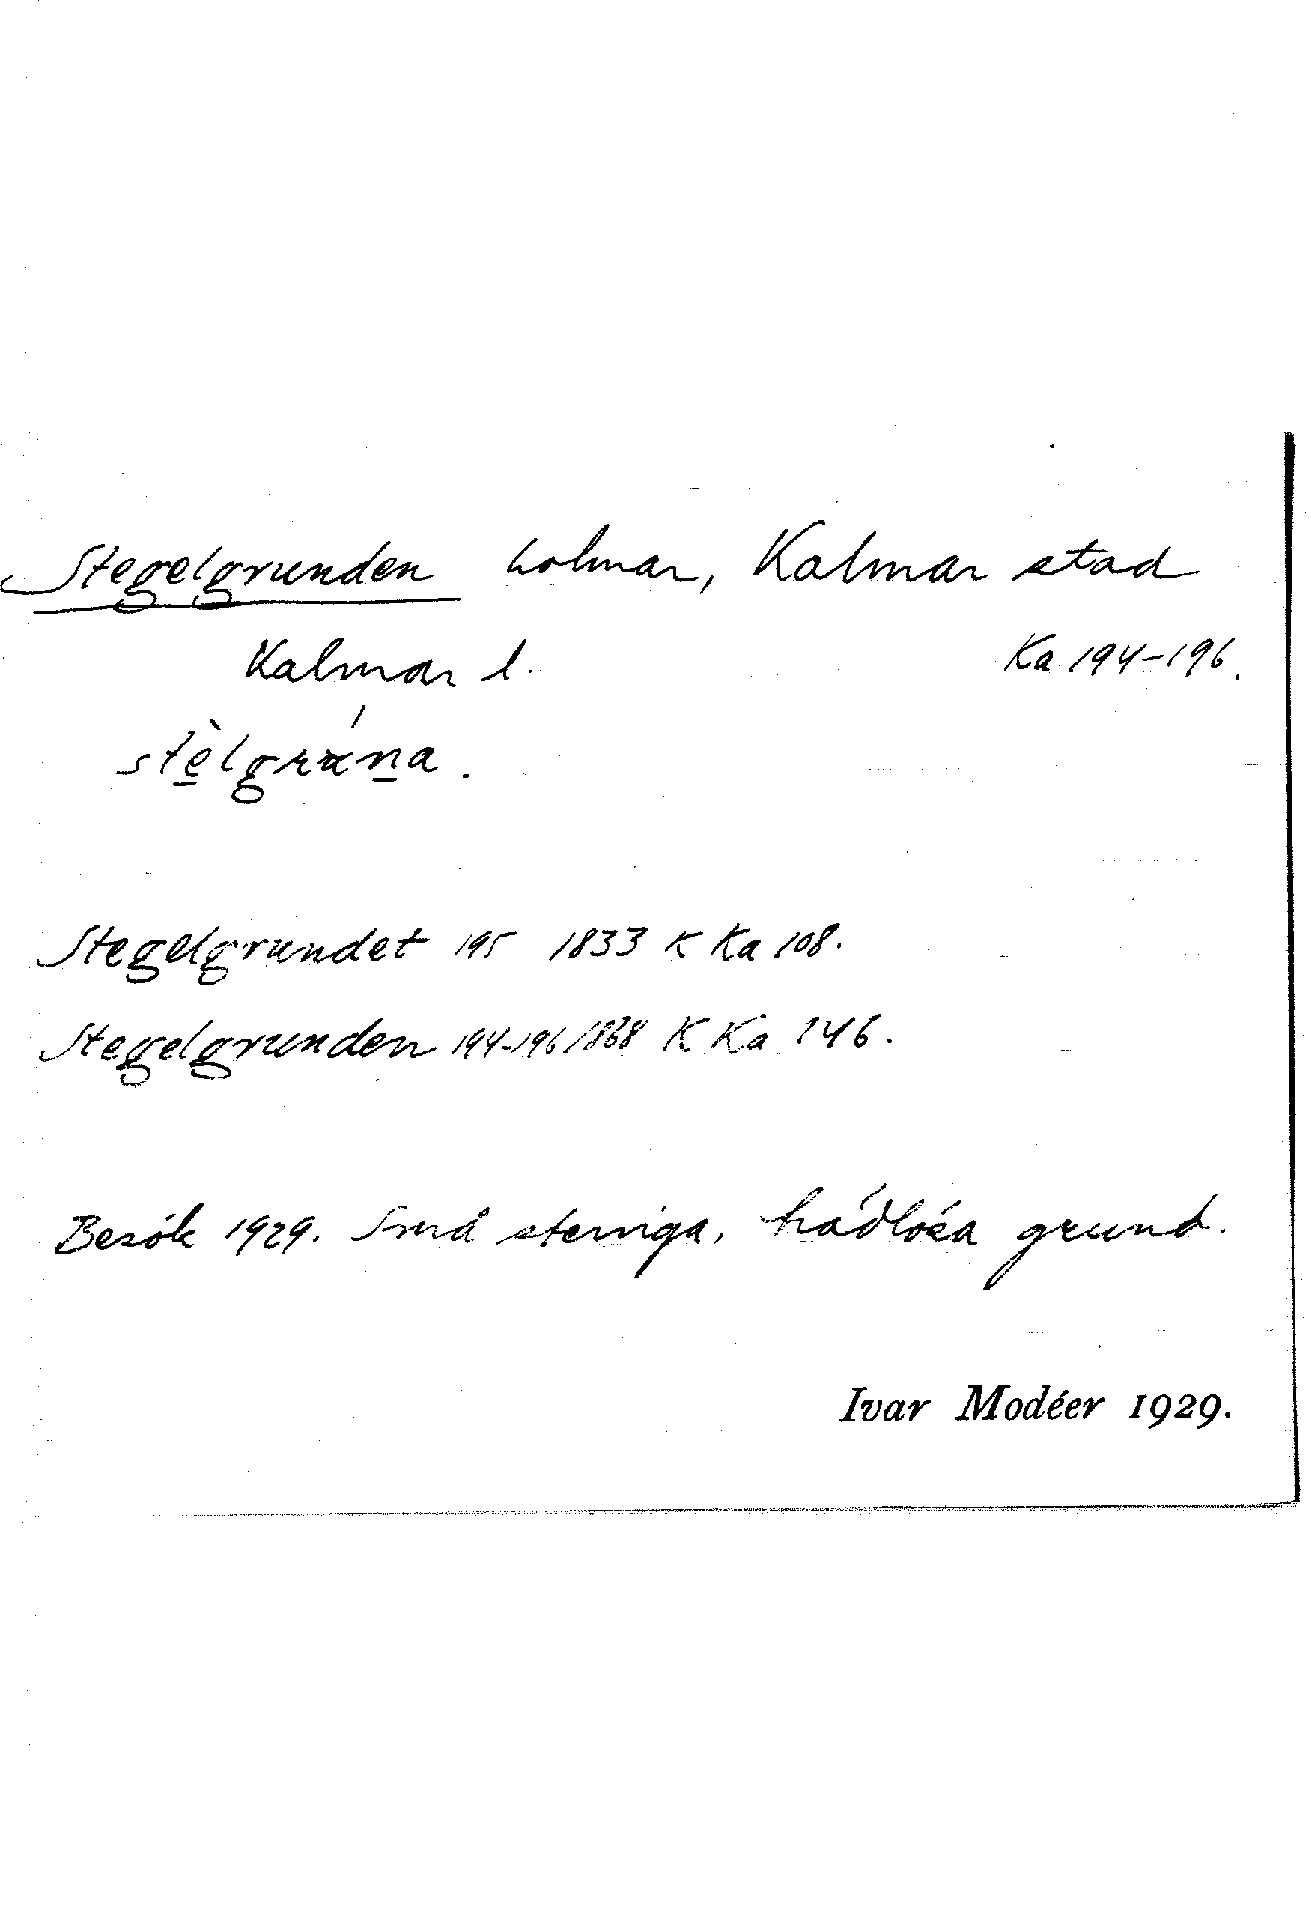 Stegelgrunden holmar, Kalmar stad
Kalmar l. Ka 194-196.
stèlgrúna.
Stegelgrundet 195 1833 K Ka 108.
Stegelgrunden 194-196 1868 K Ka 146.
Besök 1929. Små steniga, trädlösa grund.
Ivar Modéer 1929.